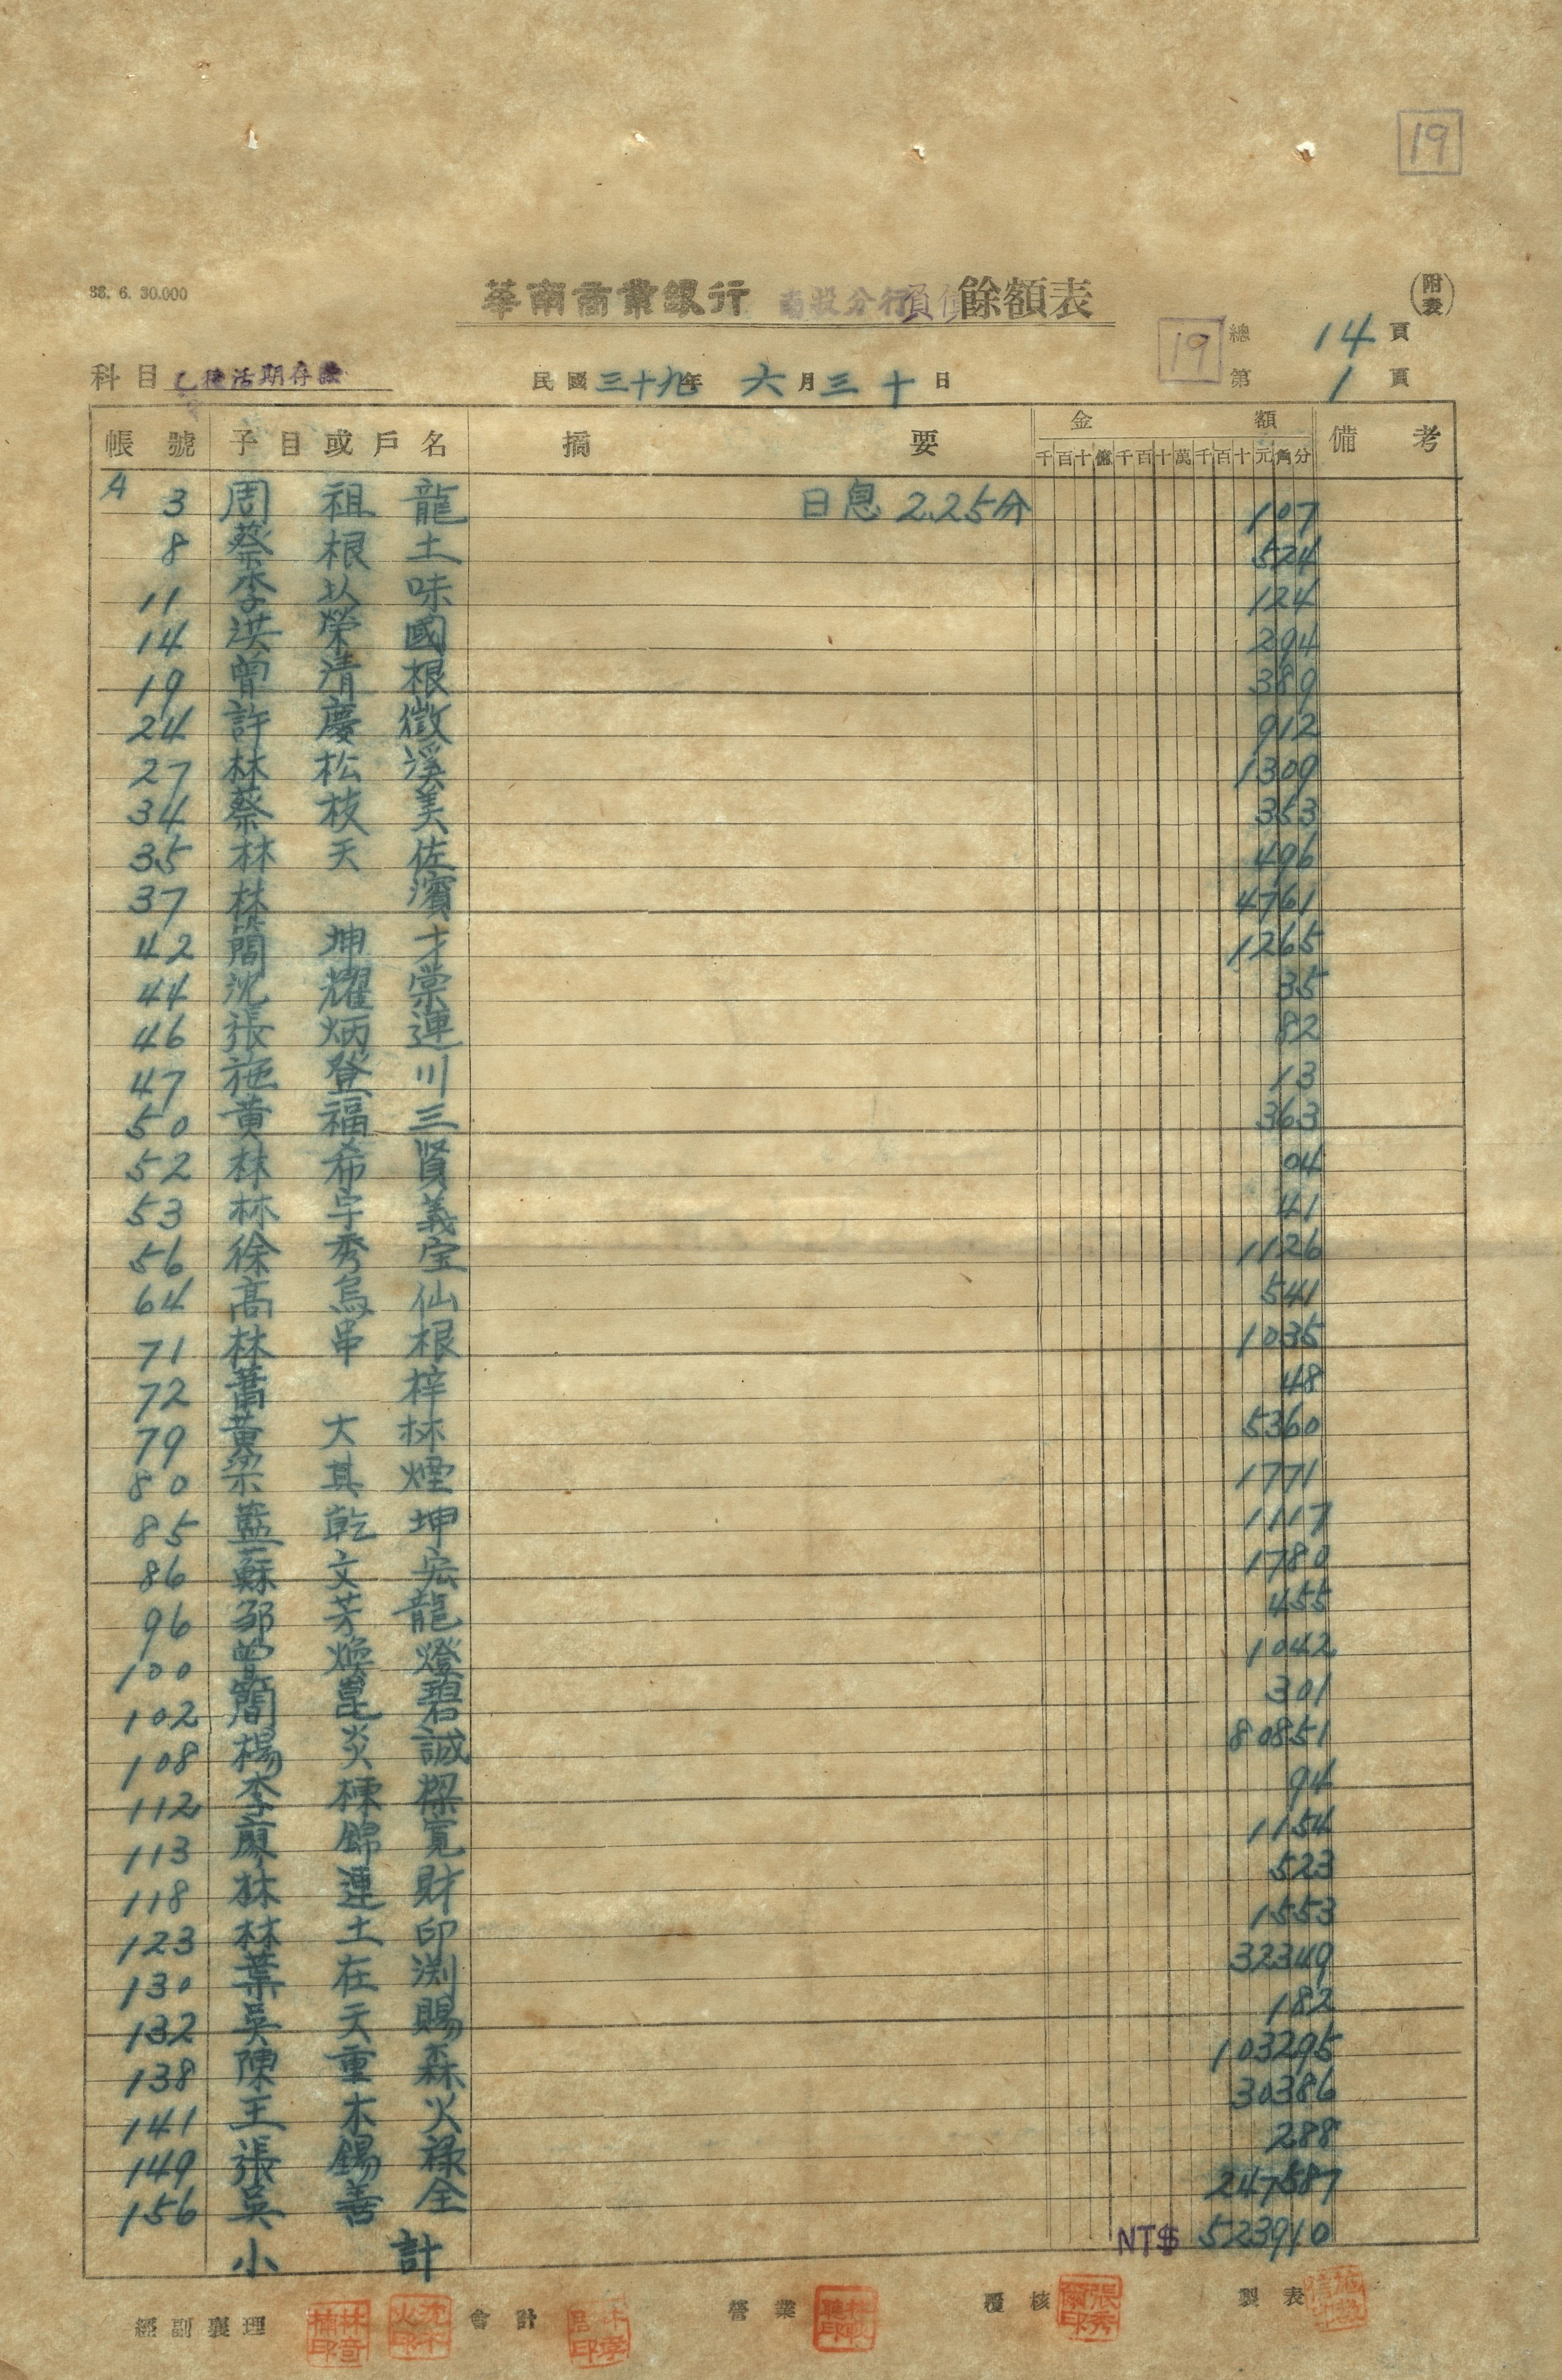 19
38. 6. 30.000
華南商業銀行 南投分行 負債 餘額表 (附表)
19 總 14 頁
科目 乙種活期存款 民國三十九年 六月三十日 第 1 頁
帳號 子目或戶名 摘要 金額 備考
千百十億千百十萬千百十元角分
A 3 周祖龍 日息 2.25分 107
8 蔡根土 524
11 李以味 124
14 洪榮國 294
19 曾清根 389
24 許慶徵 912
27 林松溪 1309
34 蔡枝美 353
35 林天佐 496
37 林濱 4761
42 簡坤才 1265
44 沈耀棠 35
46 張炳連 82
47 施登川 13
50 黃福三 363
52 林希賢 04
53 林宇義 41
56 徐秀宝 1126
64 高烏仙 541
71 林串根 1035
72 蕭梓 48
79 黃大林 5360
80 梁其煙 1771
85 藍乾坤 1117
86 蘇文宏 1780
96 鄒芳龍 455
100 曾煥燈 1042
102 簡崑碧 301
108 楊炎誠 80851
112 李棟樑 94
113 廖錦寬 1154
118 林連財 523
123 林土印 1553
130 葉在渕 32349
132 吳天賜 182
138 陳重森 103295
141 王木火 30386
149 張錫祿 288
156 吳善全 247587
小計 NT$ 523910
經副襄理 會計 營業 覆核 製表